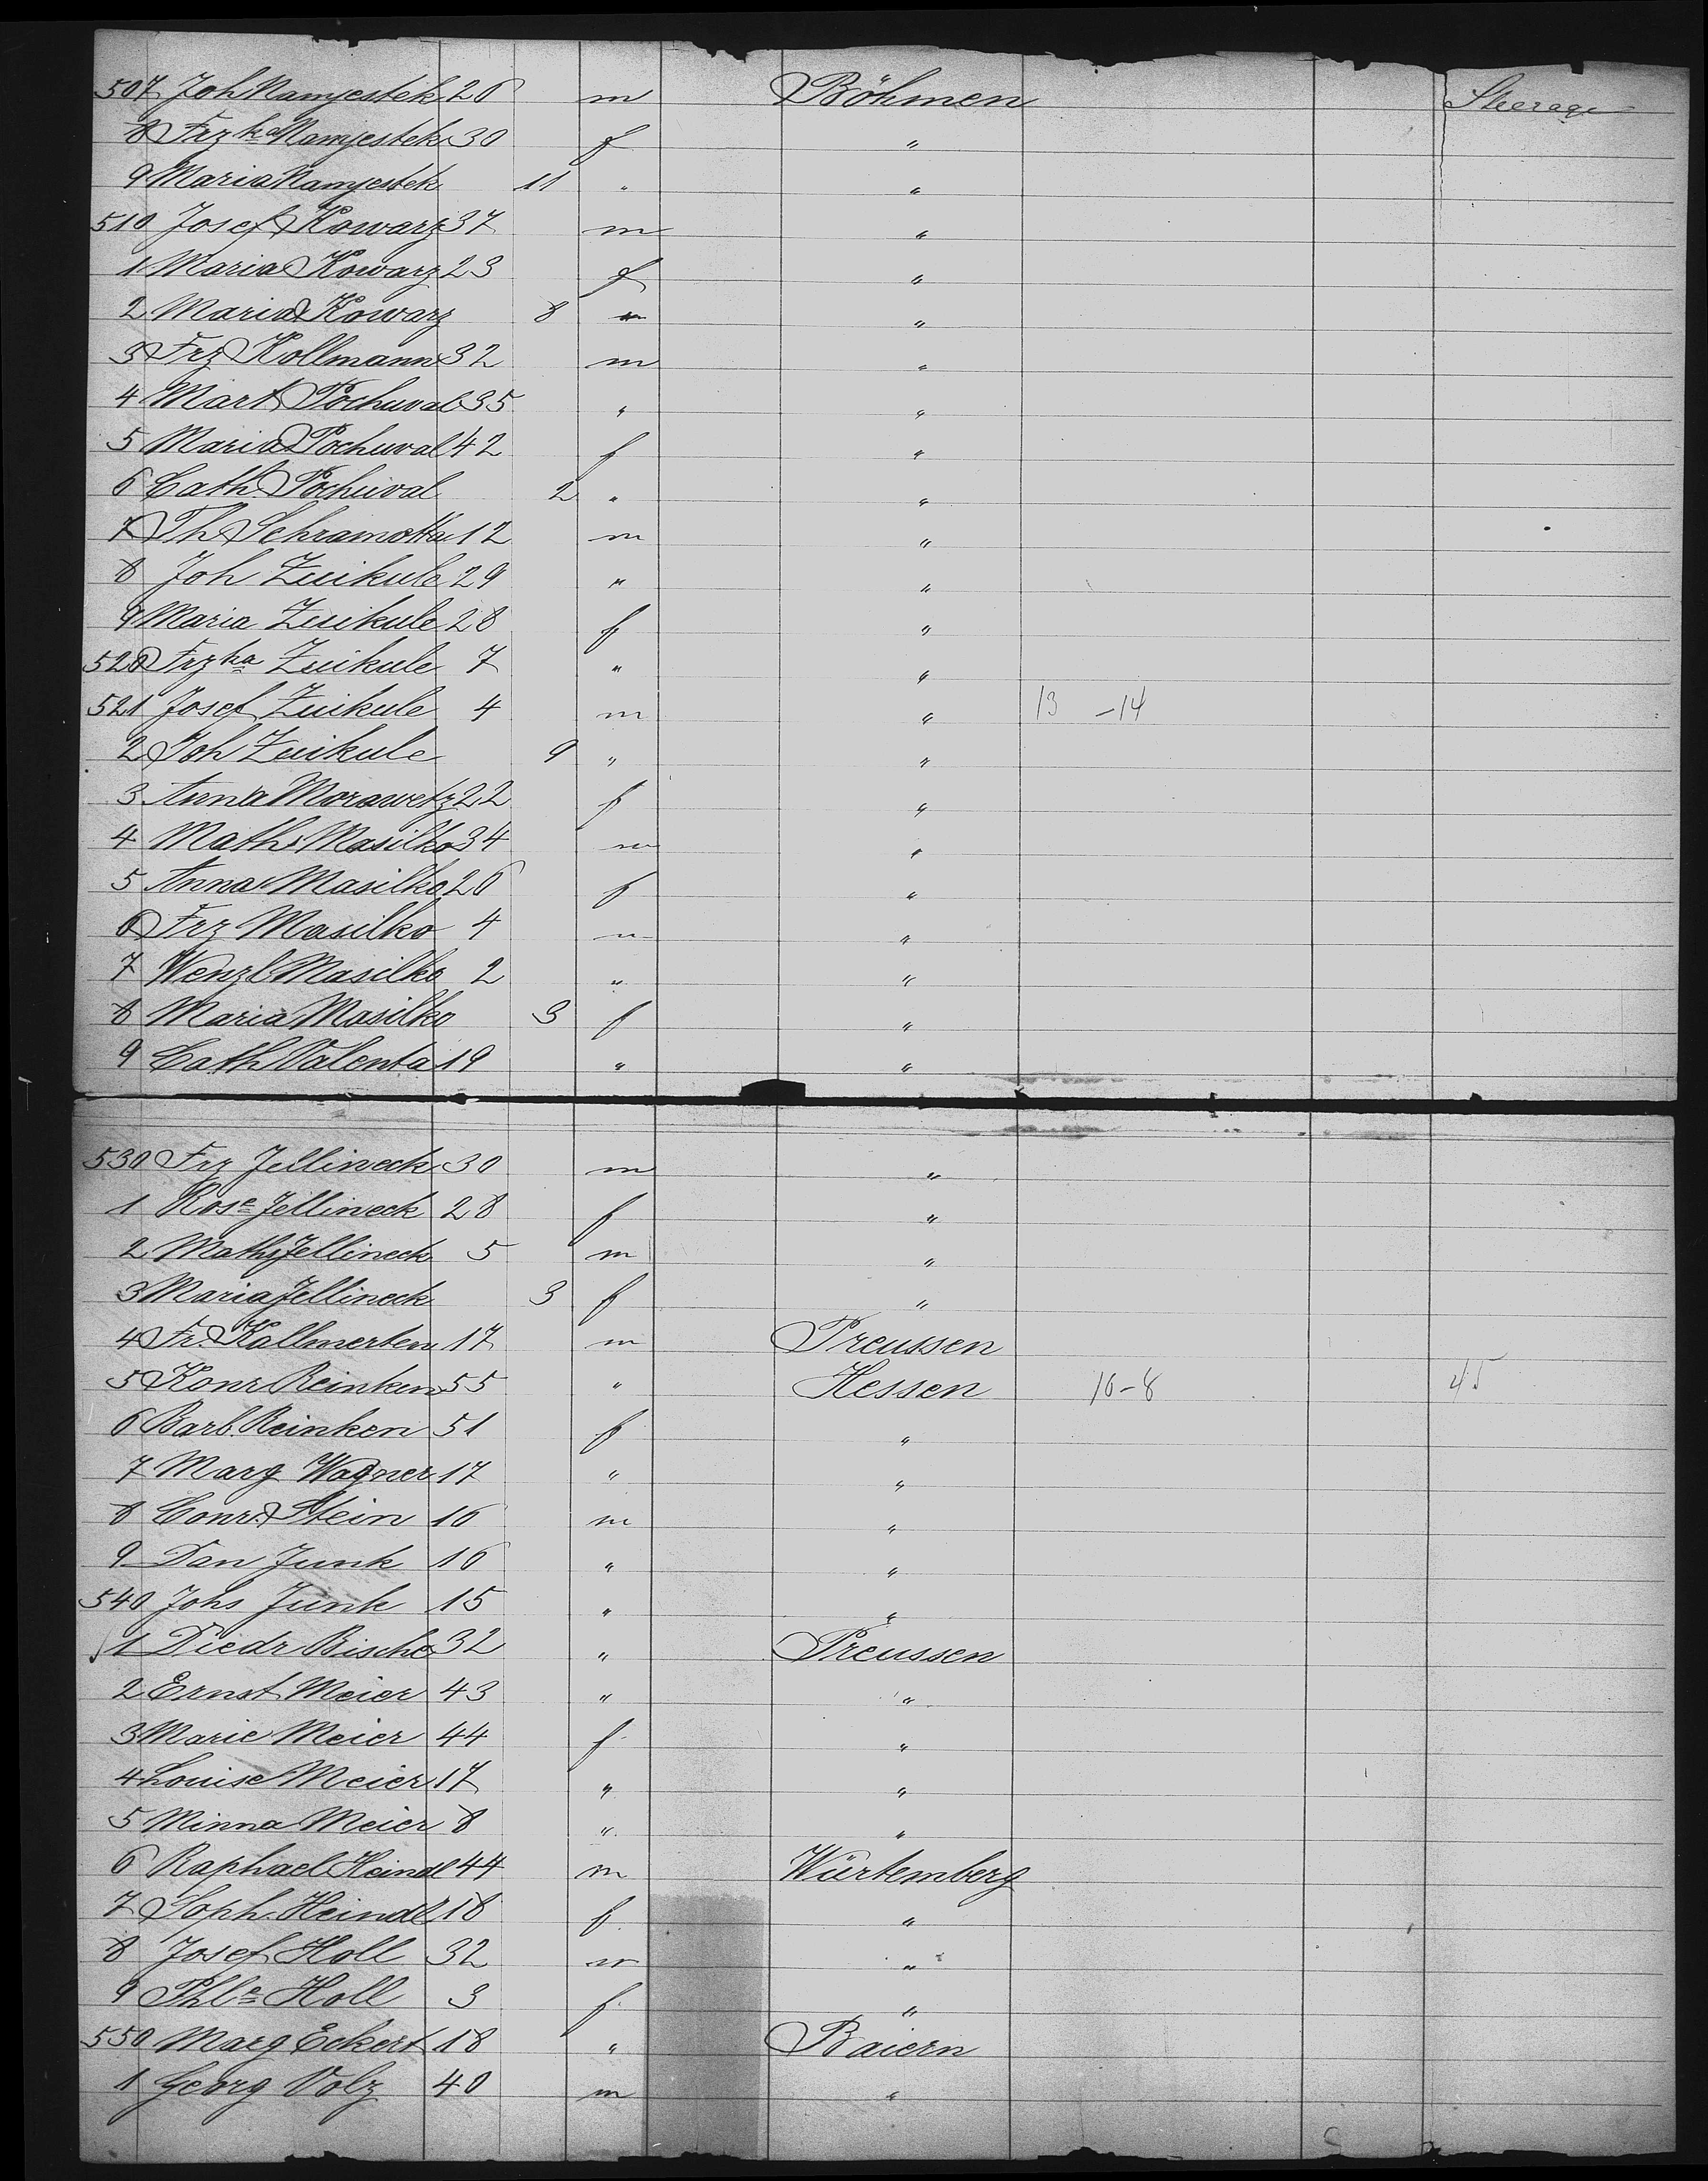 507 Joh Namjestek 26 m Böhmen Steerage
8 Frzka Namjestek 30 f "
9 Maria Namjestek 11 " "
510 Josef Kowarz 37 m "
1 Maria Kowarz 23 f "
2 Maria Kowarz 8 " "
3 Frz Kollmann 32 m "
4 Mart Pochuval 35 " "
5 Maria Pochuval 42 f "
6 Cath Pochuval 2 " "
7 Th Schramotta 12 m "
8 Joh Zuikule 29 " "
9 Maria Zuikule 28 f "
520 Frzka Zuikule 7 " "
521 Josef Zuikule 4 m " 13 - 14
2 Joh Zuikule 9 " "
3 Anna Morawetz 22 f "
4 Maths Masilko 34 m "
5 Anna Masilko 26 f "
6 Frz Masilko 4 m "
7 Wenzl Masilko 2 " "
8 Maria Masilko 3 f "
9 Cath Valenta 19 " "
530 Frz Jellineck 30 m "
1 Rose Jellineck 28 f "
2 Maths Jellineck 5 m "
3 Maria Jellineck 3 f "
4 Fr. Kallmerten 17 m Preussen
5 Konr Reinken 55 " Hessen 10-8 45
6 Barb. Reinken 51 f "
7 Marg Wagner 17 " "
8 Conr. Stein 16 m "
9 Dan Junk 16 " "
540 Johs Junk 15 " "
1 Diedr Bische 32 " Preussen
2 Ernst Meier 43 " "
3 Marie Meier 44 f "
4 Louise Meier 17 " "
5 Minna Meier 8 " "
6 Raphael Heindl 44 m Würtemberg
7 Soph. Heindl 18 f "
8 Josef Holl 32 m "
9 Phle Holl 3 f "
550 Marg Eckert 18 " Baiern
1 Georg Volz 40 m "